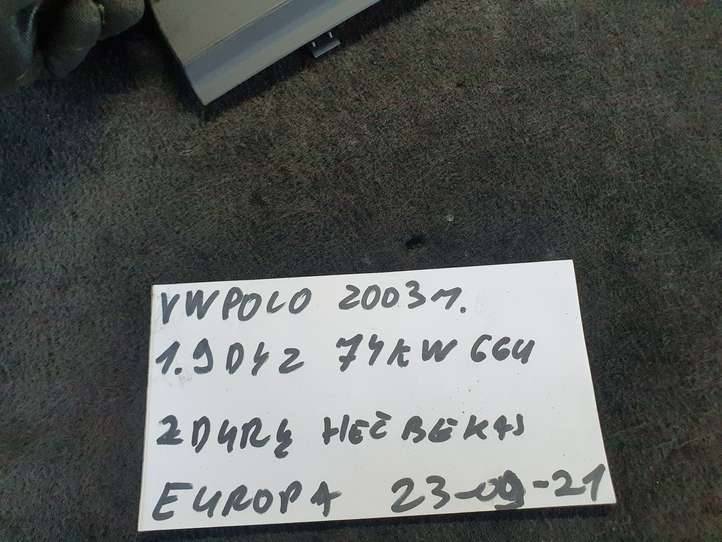 VW POLO 2003 m.
1.9 DYZ 74 KW 6GU
2 DURŲ HEČBEKAS
EUROPA 23-09-21